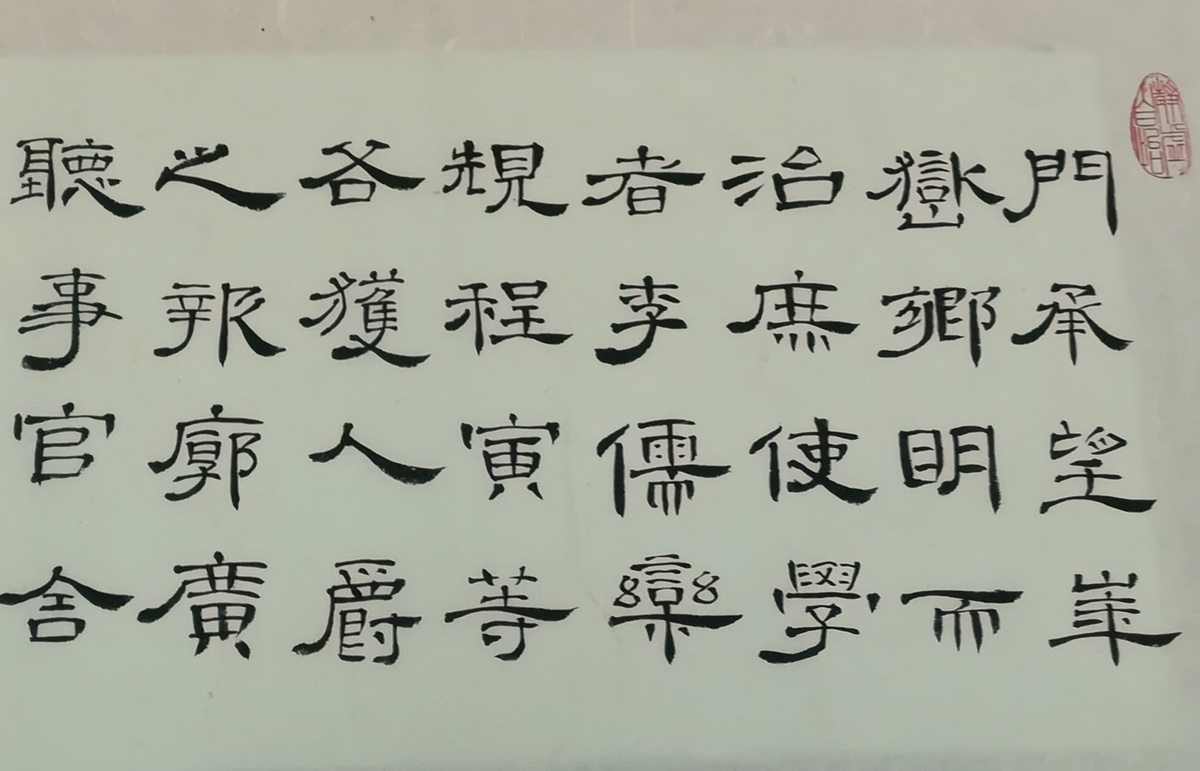 門承望崋
嶽鄉明而
治庶使學
者李儒欒
規程寅等
各獲人爵
之報廓廣
聽事官舍